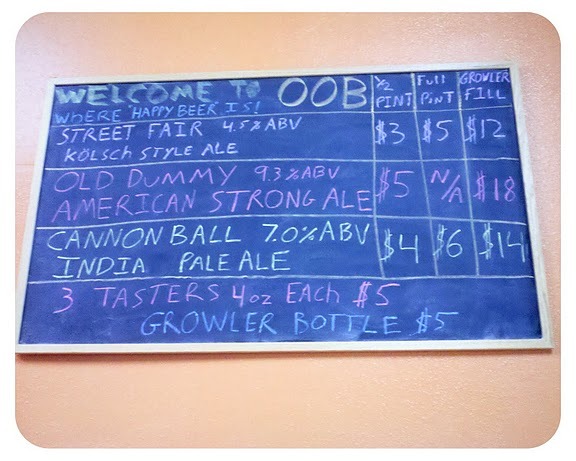 WELCOME TO OOB
WHERE "HAPPY BEER" IS!
1/2 PINT
Full PiNT
GROWLER FILL
STREET FAIR 4.5% ABV
KÖLSCH STYLE ALE
$3 $5 $12
OLD DUMMY 9.3% ABV
AMERICAN STRONG ALE
$5 N/A $18
CANNON BALL 7.0% ABV
INDIA PALE ALE
$4 $6 $14
3 TASTERS 4oz EACH $5
GROWLER BOTTLE $5